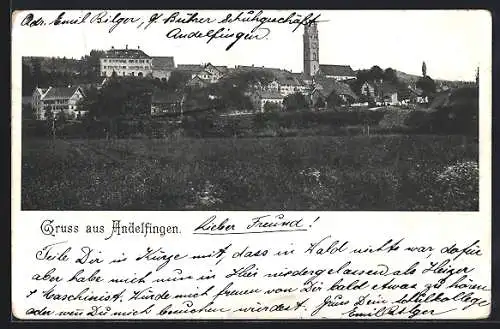 Adr. Emil Bilger, z. Butzer Schuhgeschäft
Andelfingen.
Gruss aus Andelfingen.
Lieber Freund!
Teile Dir in Kürze mit, dass in Wald nichts war, dafür
aber habe mich nun in Hier niedergelassen als Heizer
& Maschinist. Würde mich freuen von Dir bald etwas zu hören
oder wenn Du mich besuchen würdest. Gruss Dein Schulkollege
Emil Bilger